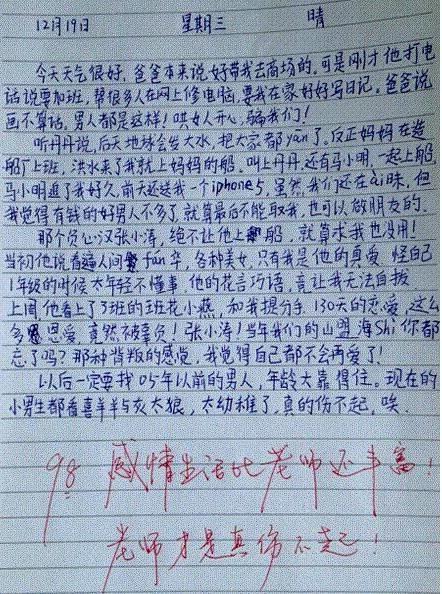 12月19日 星期三 晴
今天天气很好,爸爸本来说好带我去商场的,可是刚才他打电
话说要加班,帮很多人在网上修电脑,要我在家好好写日记。爸爸说
画不算话,男人都是这样!哄女人开心,骗我们!
听丹丹说,后天地球会发大水,把大家都yān了。反正妈妈在造
船厂上班,洪水来了我就上妈妈的船。叫上丹丹还有马小明,一起上船。
马小明追了我好久,前天还送我一个iphone5,虽然我们还在ài昧,但
我觉得有钱的好男人不多了,就算最后不能取我,也可以做朋友的。
那个负心汉张小涛,绝不让他上船,就算求我也没用!
当初他说看遍人间fán华,各种美女,只有我是他的真爱,怪自己
1年级的时候太年轻不懂事,他的花言巧语,竟让我无法自拔
上周他看上了3班的班花小燕,和我提分手,130天的恋爱,这么
多恩爱,竟然被辜负!张小涛!当年我们的山盟海Shì你都
忘了吗?那种背叛的感觉,我觉得自己都不会再爱了!
以后一定要找05年以前的男人,年龄大靠得住。现在的
小男生都看喜羊羊与灰太狼,太幼稚了,真的伤不起,唉.
98 感情生活比老师还丰富!
老师才是真伤不起!